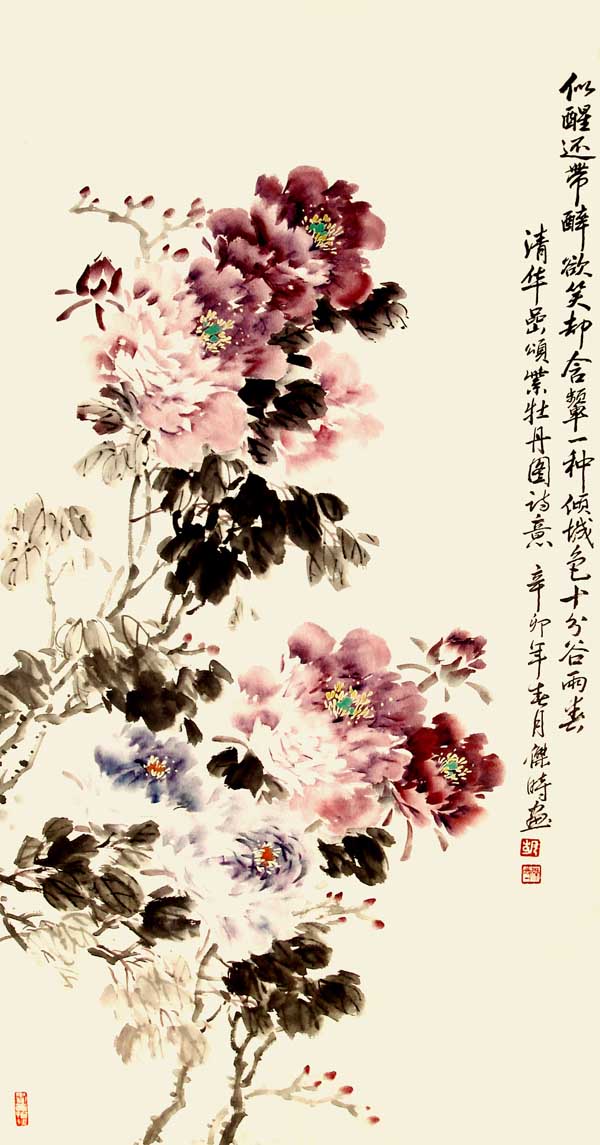 似醒还带醉欲笑却含颦一种倾城色十分谷雨春
清华嵒颂紫牡丹图诗意 辛卯年春月杰时画
胡